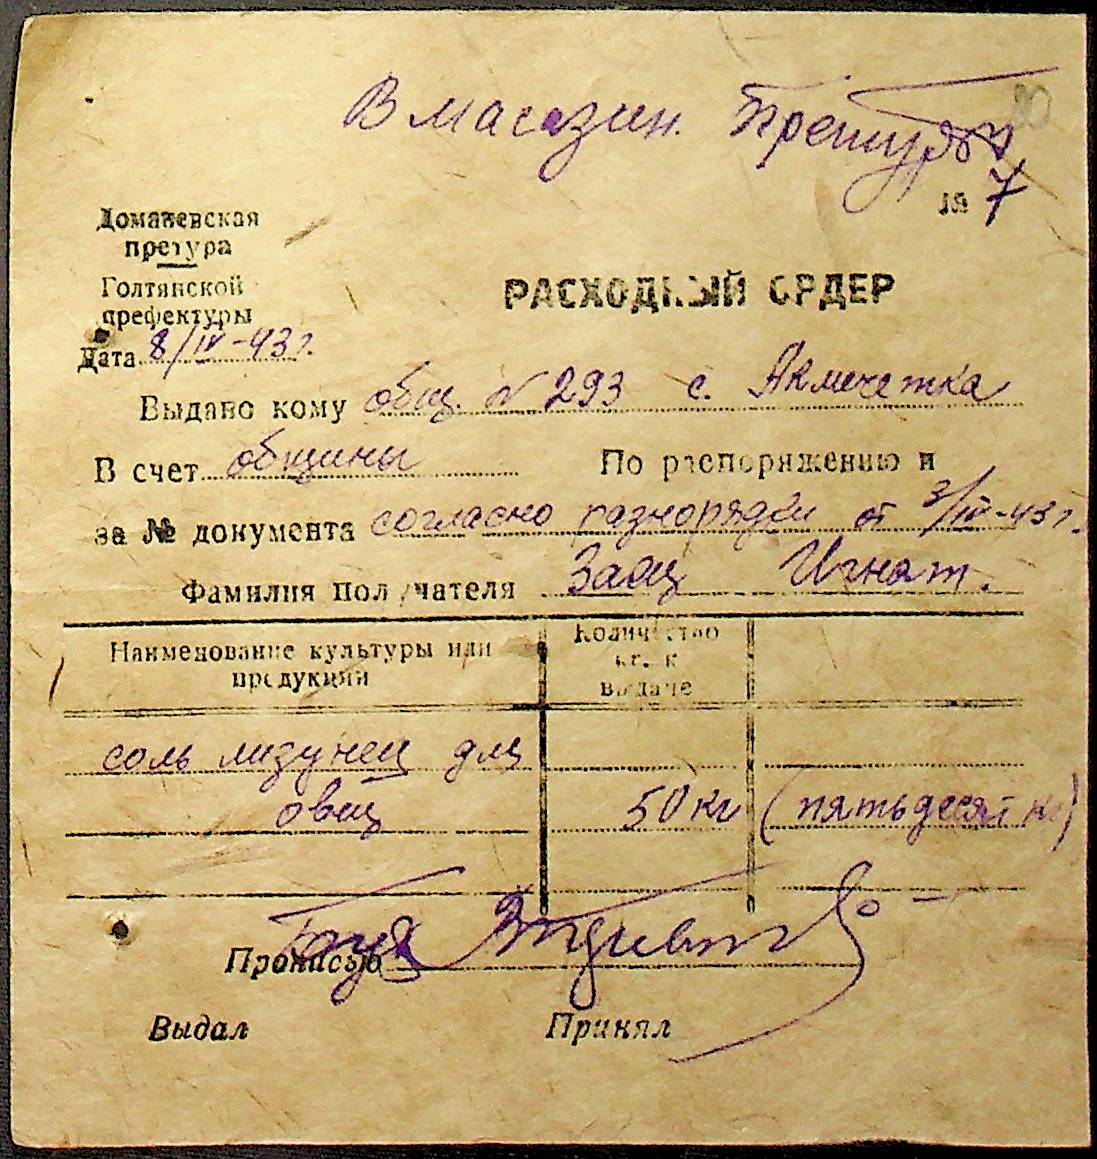 В магазин. Претуры
20
№ 7
Доманевская
претура
Голтянской
префектуры
Дата 8/IV-43 г.
РАСХОДНЫЙ ОРДЕР
Выдано кому общ. № 293 с. Акмечетка
В счет общины По распоряжению и
за № документа согласно разнорядки от 3/IV-43 г.
Фамилия получателя Заяц Игнат.
Наименование культуры или
продукции
Количество
кг. к
выдаче
соль лизунец для
овец 50 кг (пятьдесят кг)
Прописью
Выдал Принял